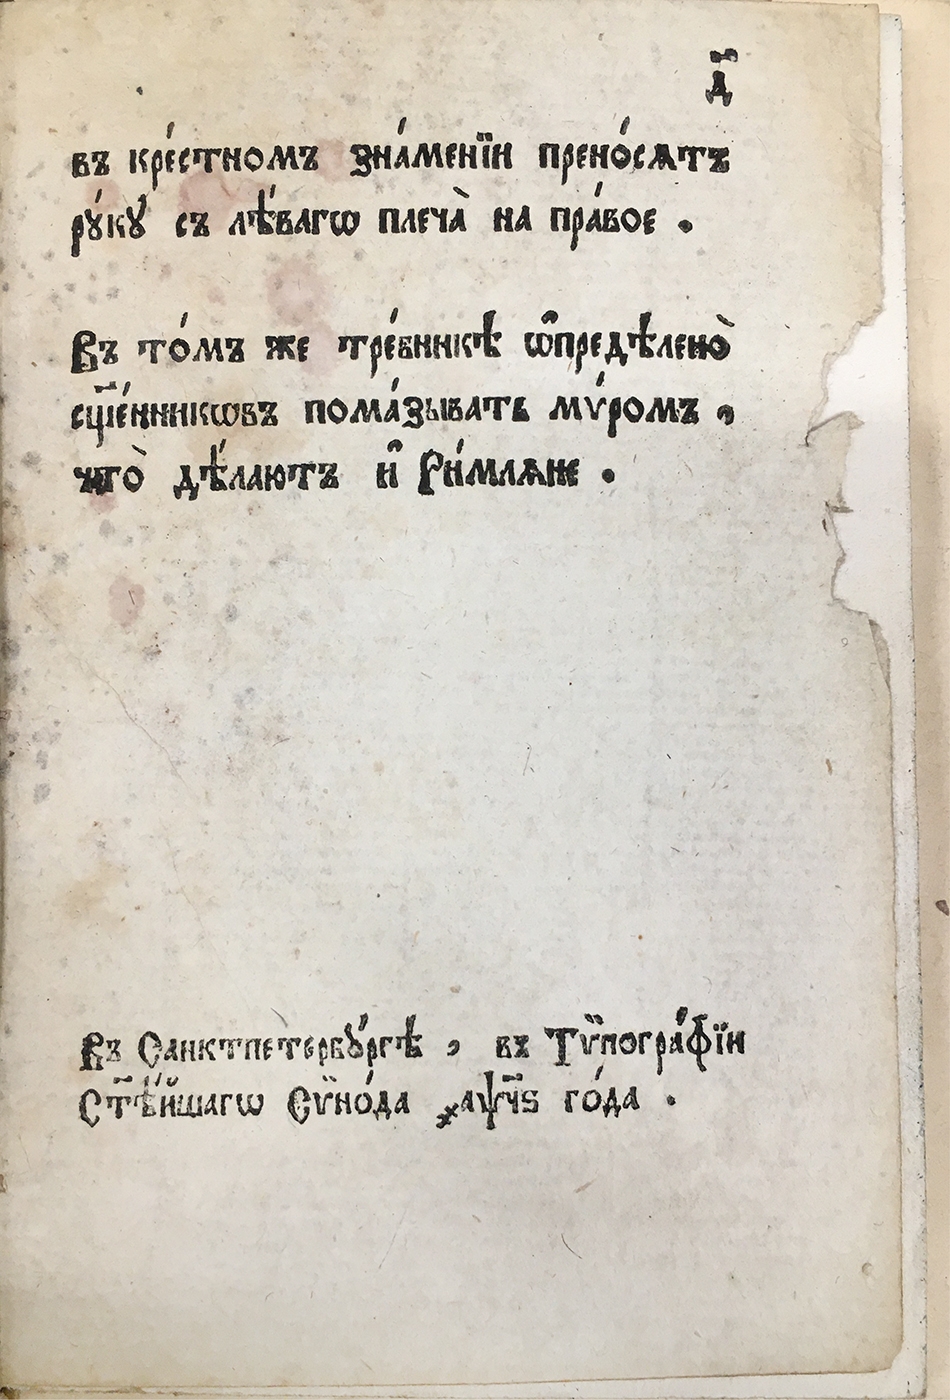 д҃
въ кре́стномъ зна́менїи прено́сѧтъ
рꙋ́кꙋ̀ съ лѣ́вагѡ плеча̀ на пра́вое .
Въ то́мъ же тре́бникѣ ѡ҆предѣлено̀
сщ҃е́нникѡвъ пома́зывать мѵ́ромъ ,
что̀ дѣ́лаютъ и҆ Ри́млѧне .
Въ Санктпетербꙋ́ргѣ , въ Тѷпогра́фїи
Ст҃ѣ́йшагѡ Сѷно́да ҂аѱч҃ѕ го́да .